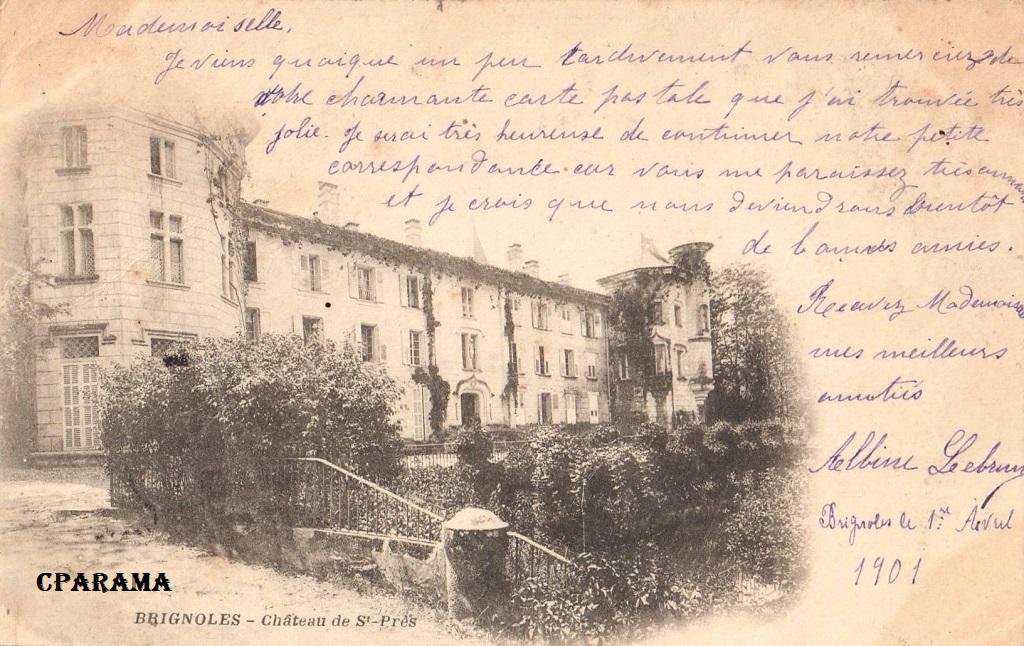 Mademoiselle,
Je viens quoique un peu tardivement vous remerciez de
votre charmante carte postale que j'ai trouvée très
jolie. Je serai très heureuse de continuer notre petite
correspondance car vous me paraissez très
et je crois que nous deviendrons bientôt
de bonnes amies.
Recevez Mademoiselle
mes meilleurs
amitiés
Albine Lebrun
Brignoles le 1er Avril
1901
CPARAMA
BRIGNOLES - Château de St-Près